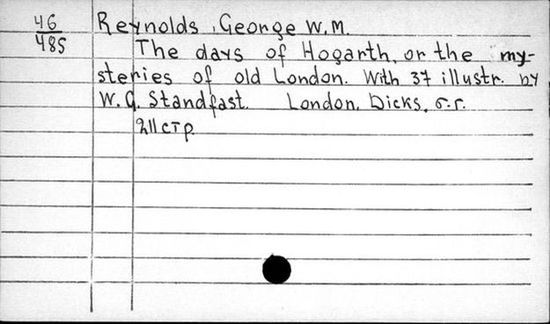 46 Reynolds, George W.M.
485 The days of Hogarth, or the my-
steries of old London. With 37 illustr. by
W. G. Standfast. London, Dicks, б.г.
211 стр.